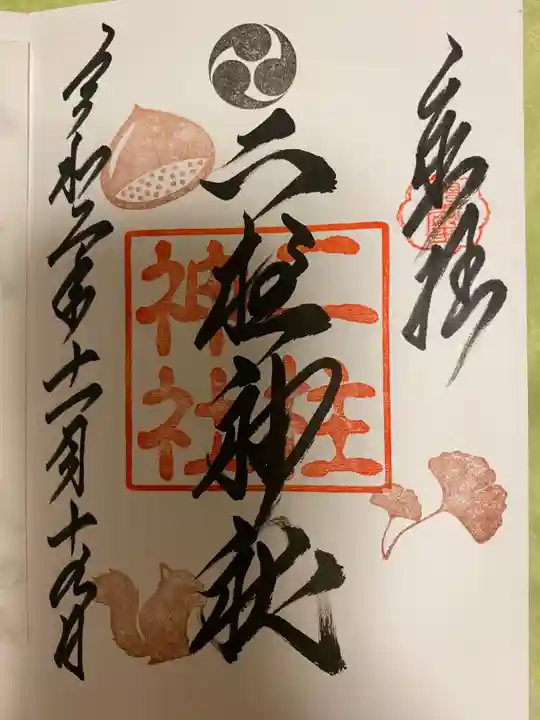 奉拝
二柱神社
二柱
神社
令和二年十一月十九日